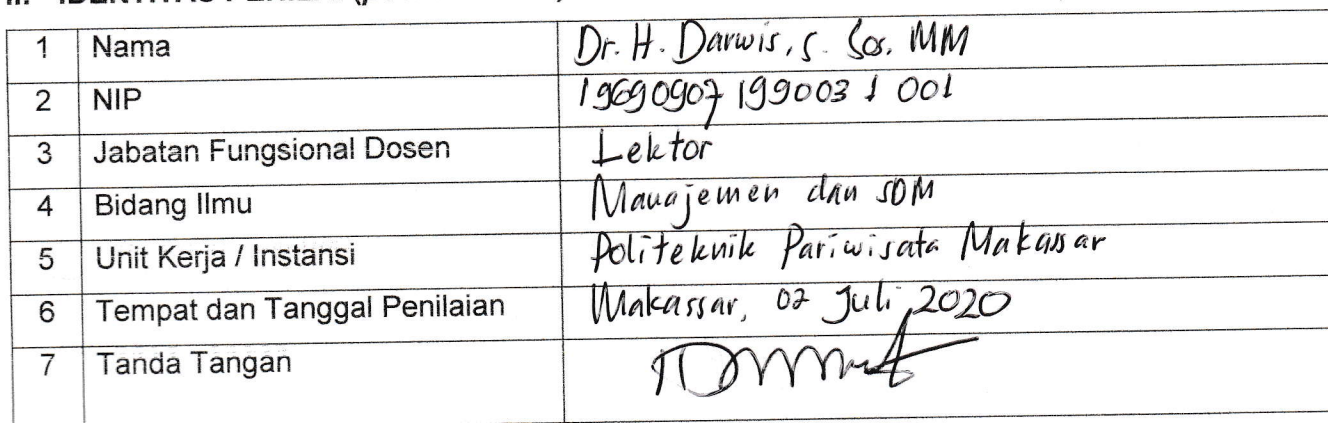 1 Nama Dr. H. Darwis, S. Sos. MM
2 NIP 19690907 199003 1 001
3 Jabatan Fungsional Dosen Lektor
4 Bidang Ilmu Manajemen dan SDM
5 Unit Kerja / Instansi Politeknik Pariwisata Makassar
6 Tempat dan Tanggal Penilaian Makassar, 02 Juli 2020
7 Tanda Tangan